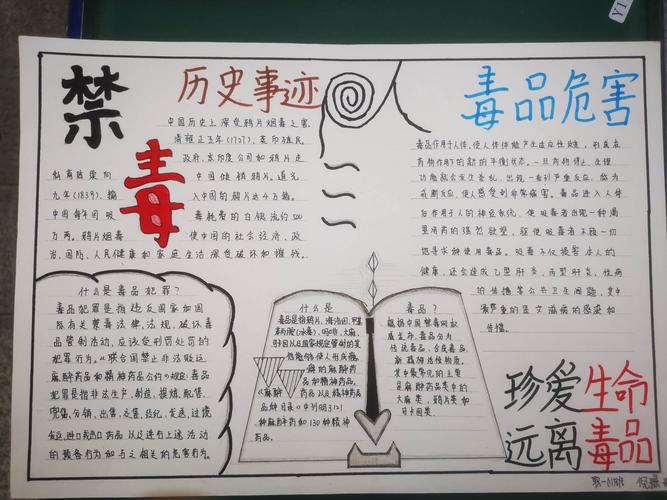 禁
毒
历史事迹
中国历史上深受鸦片烟毒之害,
清雍正五年(1727),英印殖民
政府,东印度公司和鸦片走
私商贩卖向中国倾销鸦片,道光
九年(1839),输入中国的鸦片达4万箱。
中国每年因吸毒耗费的白银流约500
万两。鸦片烟毒使中国的社会经济、政
治、国防、人民健康和家庭生活深受破坏和摧残。
毒品危害
毒品作用于人体,使人体体能产生适应性改变,形成在
药物作用下的新的平衡状态。一旦药物停止,生理
功能就会发生紊乱,出现一系列严重反应,称为
戒断反应,使人感受到非常痛苦。毒品进入人体
后作用于人的神经系统,使吸毒者出现一种渴
望用药的强烈欲望,驱使吸毒者不顾一切
地寻求和使用毒品。吸毒不仅损害本人的
健康,还会造成乙型肝炎、丙型肝炎、性病
的传播等公共卫生问题,其中
最严重的是艾滋病的感染和
传播。
什么是毒品犯罪?
毒品犯罪是指违反国家和国
际有关禁毒法律、法规,破坏毒
品管制活动,应该受到罚处罚的
犯罪行为。《联合国禁止非法贩运
麻醉药品和精神药品公约》规定:毒品
犯罪是指非法生产、制造、提炼、配售、
兜售、分销、出售、交售、经纪、发送、过境
发运、进口或出口药品以及进行上述活动
的预备行为和与之相关的危害行为。
什么是
毒品是指鸦片、海洛因、甲基
苯丙胺(冰毒)、吗啡、大麻、
可卡因以及国家规定管制的其
他能够使人形成瘾
癖的麻醉药
品和精神药品。
《麻醉药品及精神药品
品种目录》中列明了121
种麻醉药和130种精神
药品。
毒品?
根据中国禁毒网权
威发布,毒品分为
传统毒品、合成毒品、
新精神活性物质。
其中最常见的主要
是麻醉药品类中的
大麻类,鸦片类和
可卡因类。
珍爱生命
远离毒品